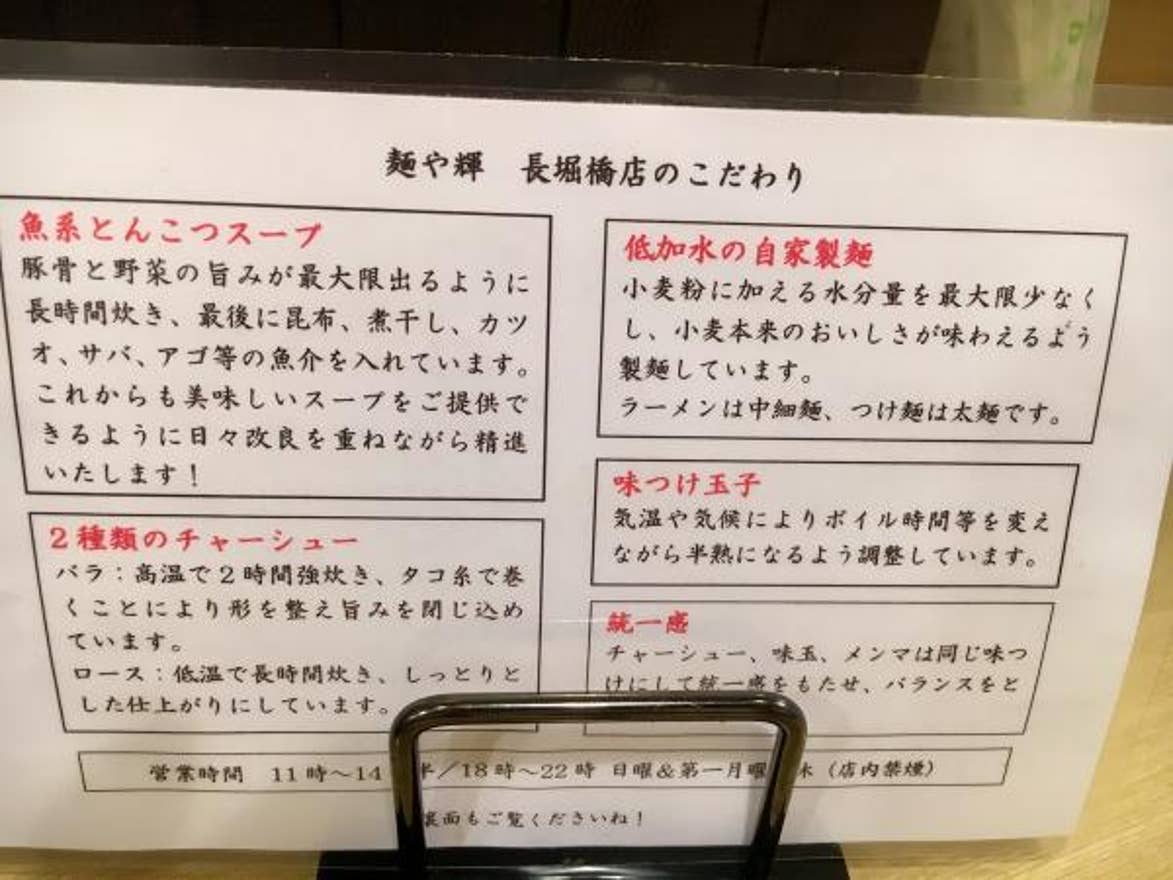 麺や輝　長堀橋店のこだわり
魚系とんこつスープ
豚骨と野菜の旨みが最大限出るように
長時間炊き、最後に昆布、煮干し、カツ
オ、サバ、アゴ等の魚介を入れています。
これからも美味しいスープをご提供で
きるように日々改良を重ねながら精進
いたします！
2種類のチャーシュー
バラ：高温で2時間強炊き、タコ糸で巻
くことにより形を整え旨みを閉じ込め
ています。
ロース：低温で長時間炊き、しっとりと
した仕上がりにしています。
低加水の自家製麺
小麦粉に加える水分量を最大限少なく
し、小麦本来のおいしさが味わえるよう
製麺しています。
ラーメンは中細麺、つけ麺は太麺です。
味つけ玉子
気温や気候によりボイル時間等を変え
ながら半熟になるよう調整しています。
統一感
チャーシュー、味玉、メンマは同じ味つ
けにして統一感をもたせ、バランスをと
営業時間　11時～14 半／18時～22時 日曜＆第一月曜 休（店内禁煙）
裏面もご覧くださいね！